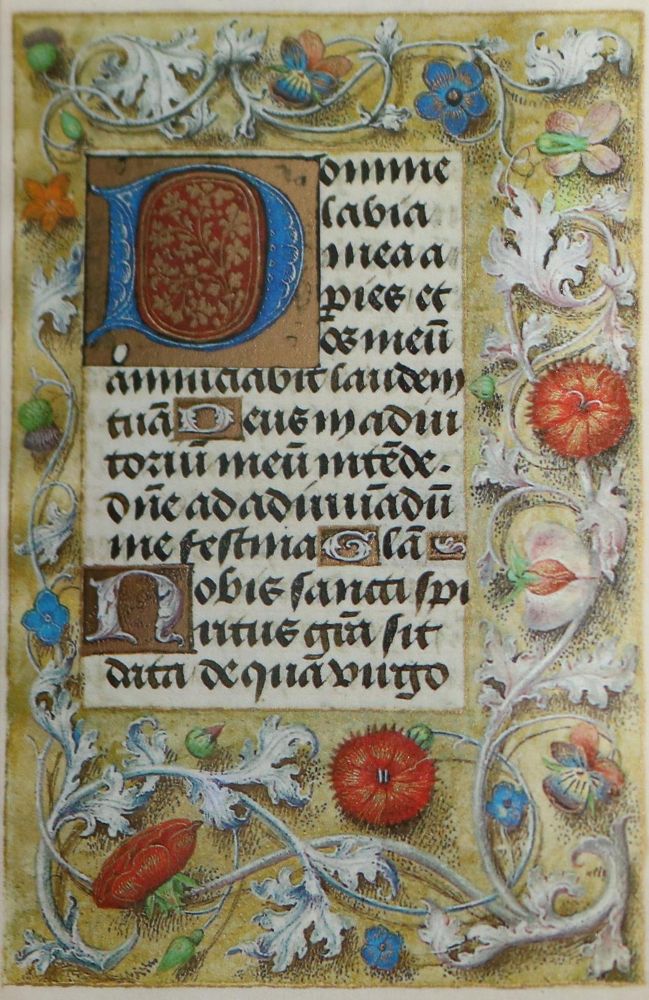 Domine
labia
mea a
pies et
os meū
annunciabit laudem
tuā Deus in adiu
toriū meū intēde.
Dn̄e ad adiuuādū
me festina Glā S
Nobis sancti spi
ritus grā sit
data de qua virgo